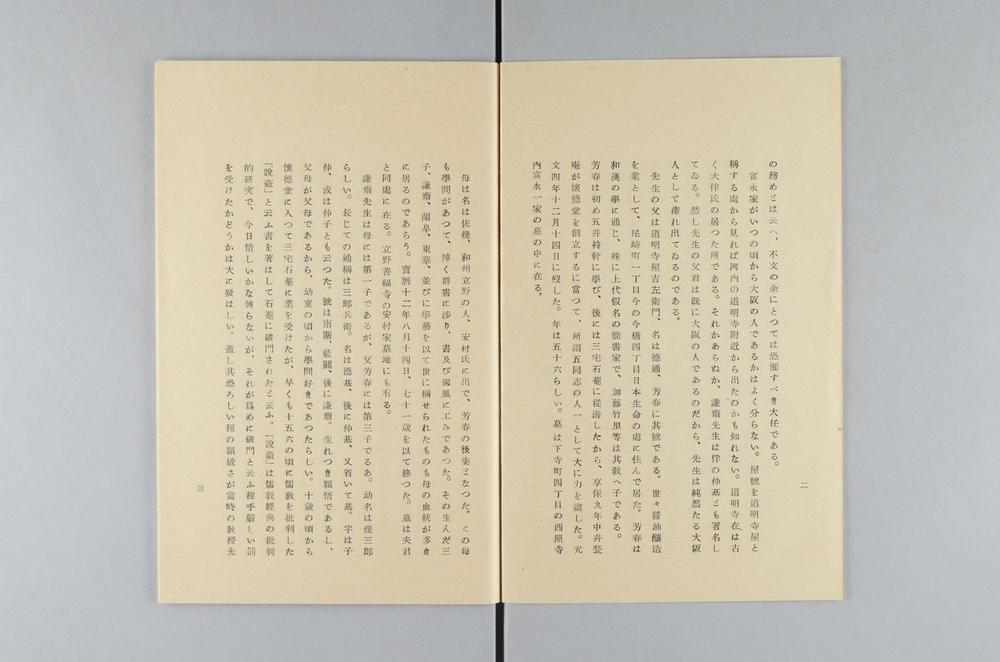 の務めとは云へ、不文の余にとつては恐懼すべき大任である。
富永家がいつの頃から大阪の人であるかはよく分らない。屋號を道明寺屋と
稱する處から見れば河内の道明寺附近から出たのかも知れない。道明寺在は古
く大伴氏の居つた所である。それかあらぬか、謙齋先生は伴の仲基とも署名し
てゐる。然し先生の父君は既に大阪の人であるのだから、先生は純然たる大阪
人として產れ出てゐるのである。
先生の父は道明寺屋吉左衛門、名は德通、芳春に其號である。世々醤油釀造
を業として、尼崎町一丁目今の今橋四丁目日本生命の處に住んで居た。芳春は
和漢の學に通じ、殊に上代假名の能書家で、加藤竹里等は其敎へ子である。
芳春は初め五井持軒に學び、後には三宅石菴に從游したから、享保九年中井甃
庵が懷德堂を創立するに當つて、所謂五同志の人一として大に力を盡した。元
文四年十二月十四日に歿した。年は五十六らしい。墓は下寺町四丁目の西照寺
內富永一家の墓の中に在る。
二
母は名は佐幾、和州立野の人、安村氏に出で、芳春の後妻となつた。この母
も學問があつて、博く群書に涉り、書及び國風に工みであつた。その生んだ三
子、謙齋、蘭皐、東華、並びに學藝を以て世に稱せられたものも母の血統が多き
に居るのであらう。寶曆十二年八月十四日、七十一歲を以て終つた。墓は夫君
と同處に在る。立野善福寺の安村家墓地にも有る。
謙齋先生は母には第一子であるが、父芳春には第三子でるあ。幼名は幾三郎
らしい。長じての通稱は三郎兵衛。名は德基、後に仲基、又省いて基。字は子
仲、或は仲子とも云つた。號は南關、藍關、後に謙齋。生れつき穎悟であるし、
父母が父母であるから、幼童の頃から學問好きであつたらしい。十歲の頃から
懷德堂に入つて三宅石菴に業を受けたが、早くも十五六の頃に儒敎を批判した
「說蔽」と云ふ書を著はして石菴に破門されたと云ふ。「說蔽」は儒敎經典の批判
的硏究で、今日惜しいかな傳らないが、それが爲めに破門と云ふ程手嚴しい罰
を受けたかどうかは大に疑はしい。蓋し其恐ろしい程の穎敏さが當時の敎授先
三